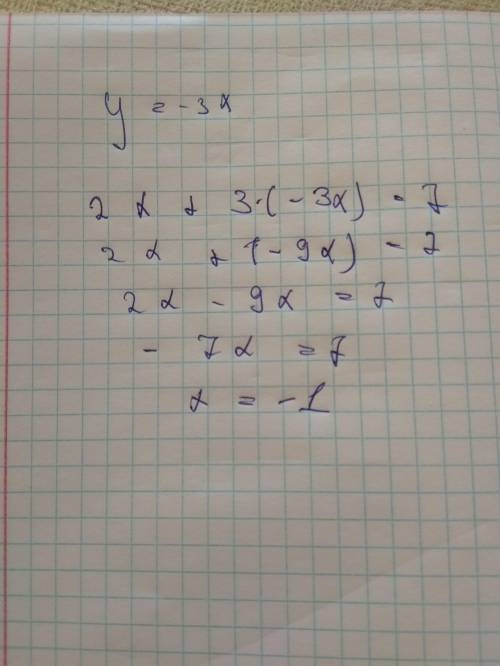 y = -3x
2x + 3·(-3x) = 7
2x + (-9x) = 7
2x - 9x = 7
- 7x = 7
x = -1